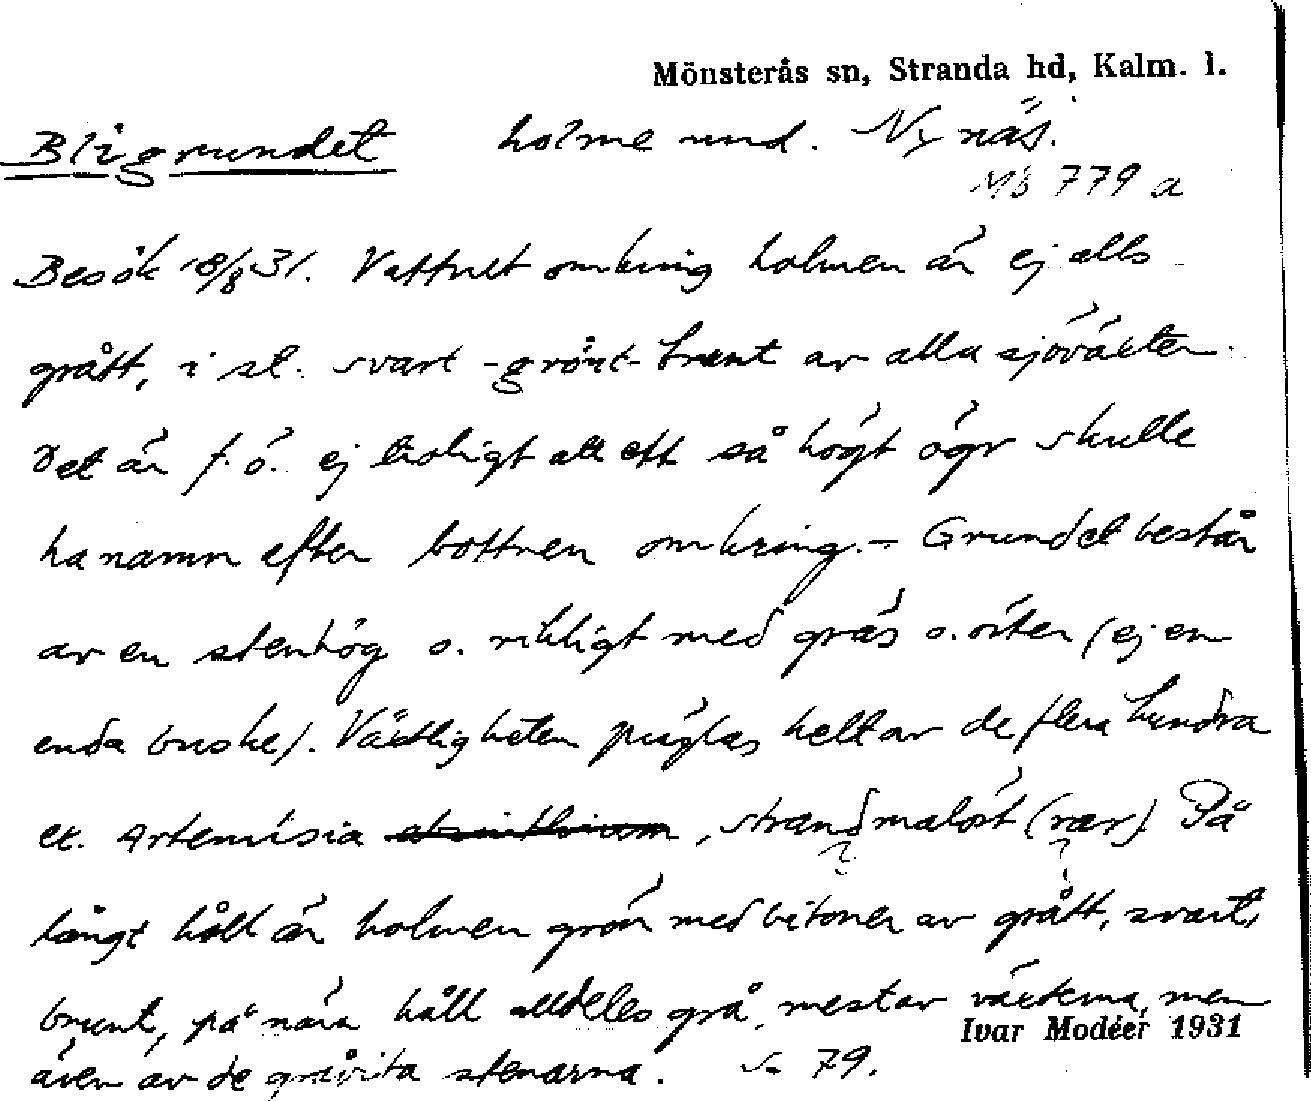 Mönsterås sn, Stranda hd, Kalm. l.
Bligrundet holme und. Nynäs.
Mb 779 a
Besök 18/8 31. Vattnet omkring holmen är ej alls
grått, i st. svart-grönt-brunt av alla sjöväxter.
Det är f. ö. ej troligt att ett så högt ögr skulle
ha namn efter bottnen omkring. – Grundet består
av en stenhög o. rikligt med gräs o. örter (ej en
enda buske). Växtligheten präglas helt av de flera hundra
ex. Artemisia absinthium, strandmalört (rær). På
långt håll är holmen grön med bitoner av grått, svart,
brunt, på nära håll alldeles grå, mest av växterna, men
Ivar Modéer 1931
även av de gråvita stenarna. S. 79.